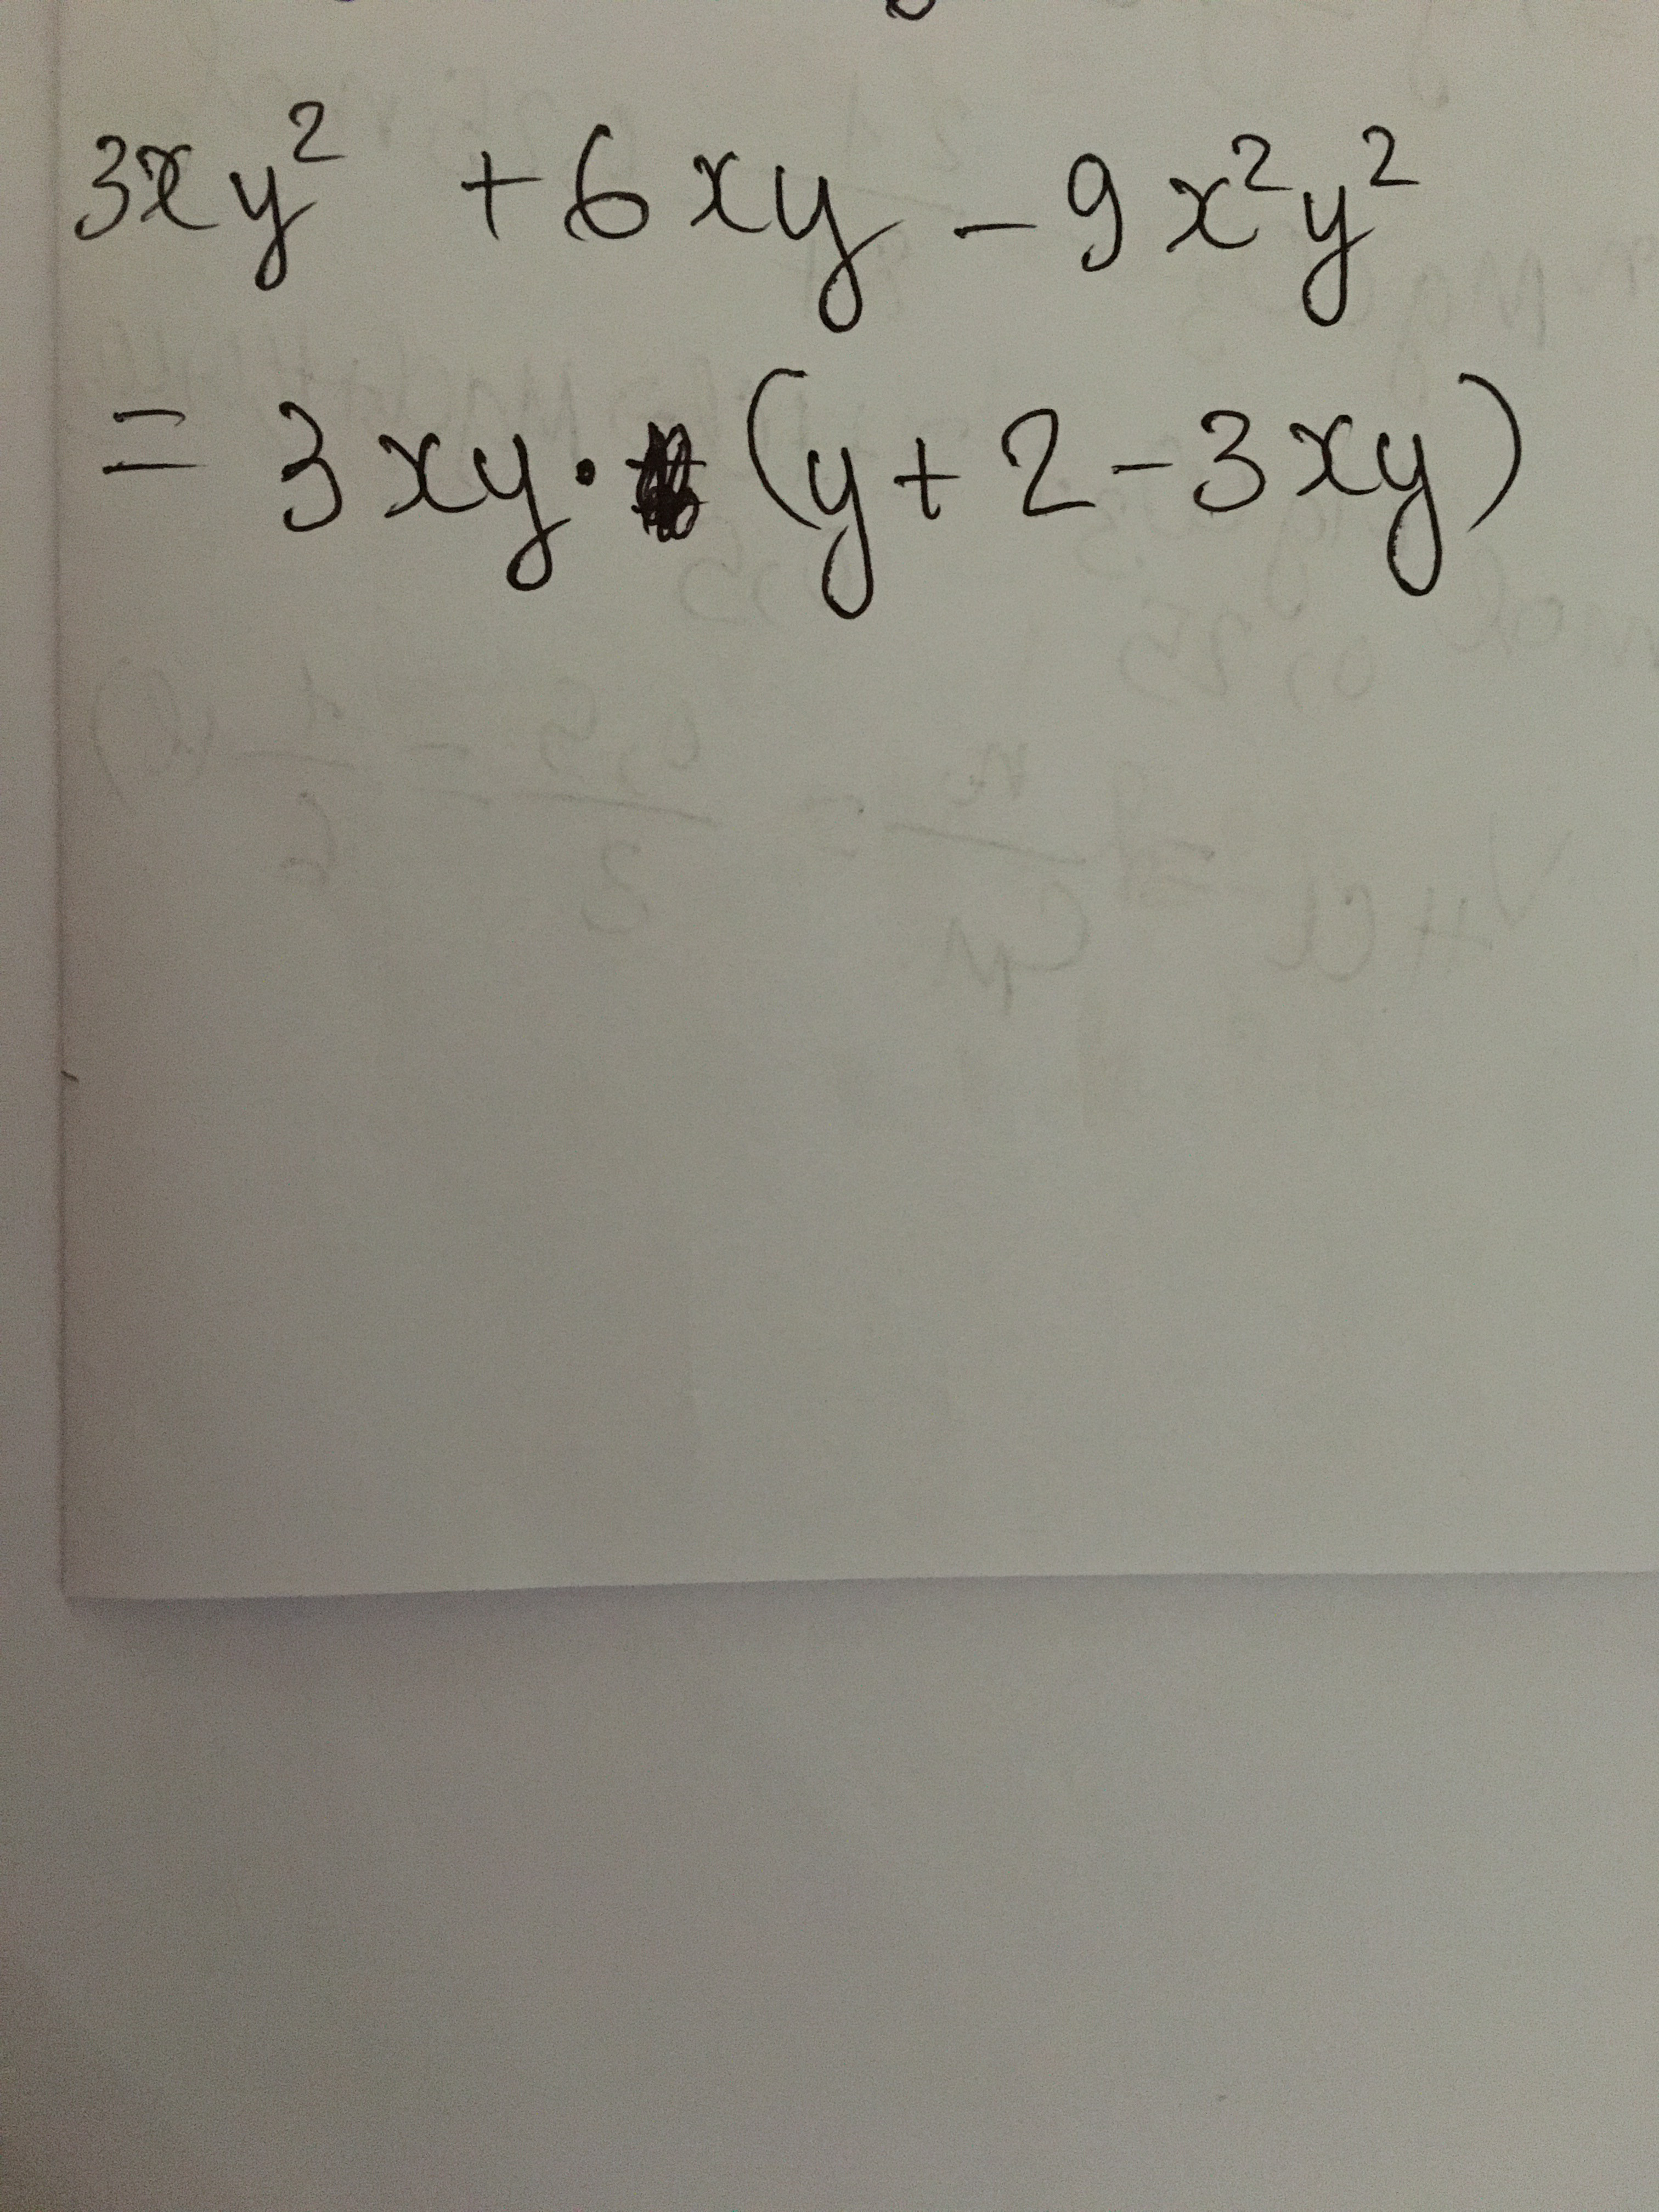 3xy² + 6xy - 9x²y²
= 3xy · (y + 2 - 3xy)